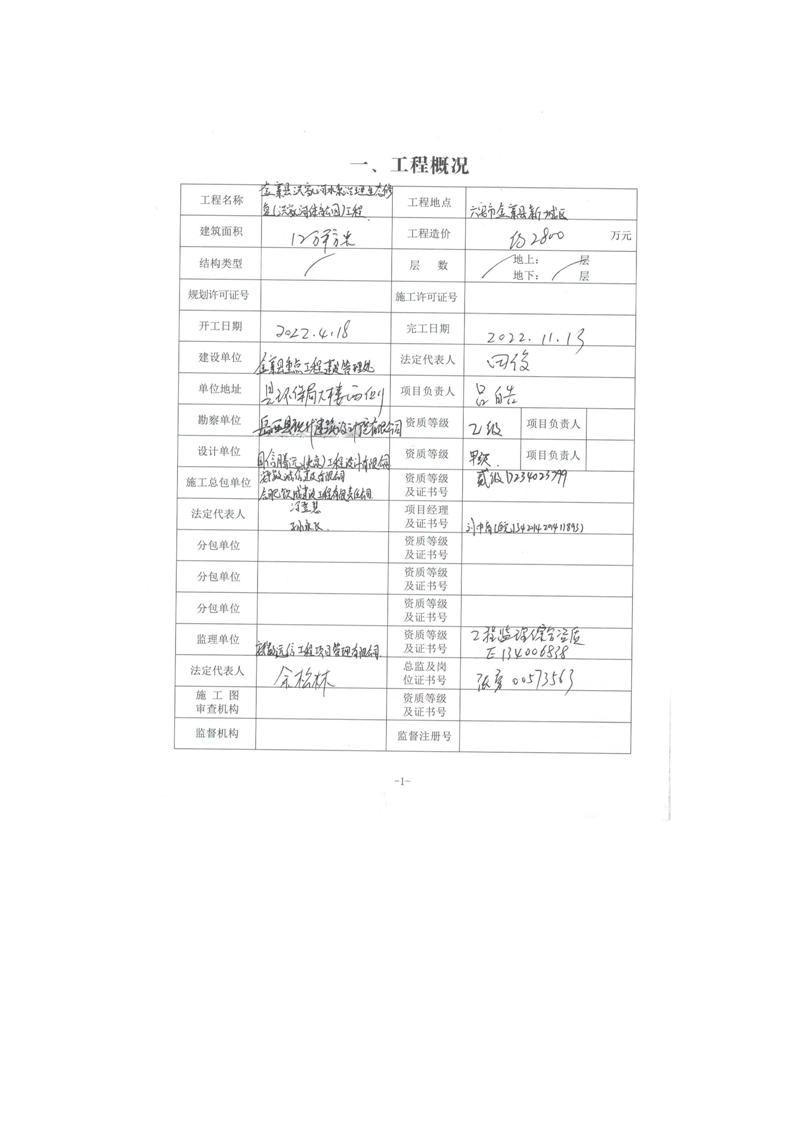 一、工程概况
工程名称 金寨县洪家河水系治理生态修 工程地点 六安市金寨县新城区
复(洪家河体育公园)工程
建筑面积 12万平方米 工程造价 约2800 万元
结构类型 层 数 地上： 层
地下： 层
规划许可证号 施工许可证号
开工日期 2022.4.18 完工日期 2022.11.13
建设单位 金寨县重点工程建设管理处 法定代表人 田俊
单位地址 县环保局大楼西侧 项目负责人 吕皓
勘察单位 岳西县 建筑设计院有限公司 资质等级 乙级 项目负责人
设计单位 国信腾远(北京)工程设计有限公司 资质等级 甲级 项目负责人
施工总包单位 安徽 建设有限公司 资质等级 贰级D234025799
合肥 建设工程有限责任公司 及证书号
法定代表人 项目经理
及证书号
分包单位 资质等级
及证书号
分包单位 资质等级
及证书号
分包单位 资质等级
及证书号
监理单位 安徽远信工程项目管理有限公司 资质等级 工程监理综合资质
及证书号 E134006838
法定代表人 余松林 总监及岗 张勇00573563
位证书号
施 工 图 资质等级
审查机构 及证书号
监督机构 监督注册号
-1-